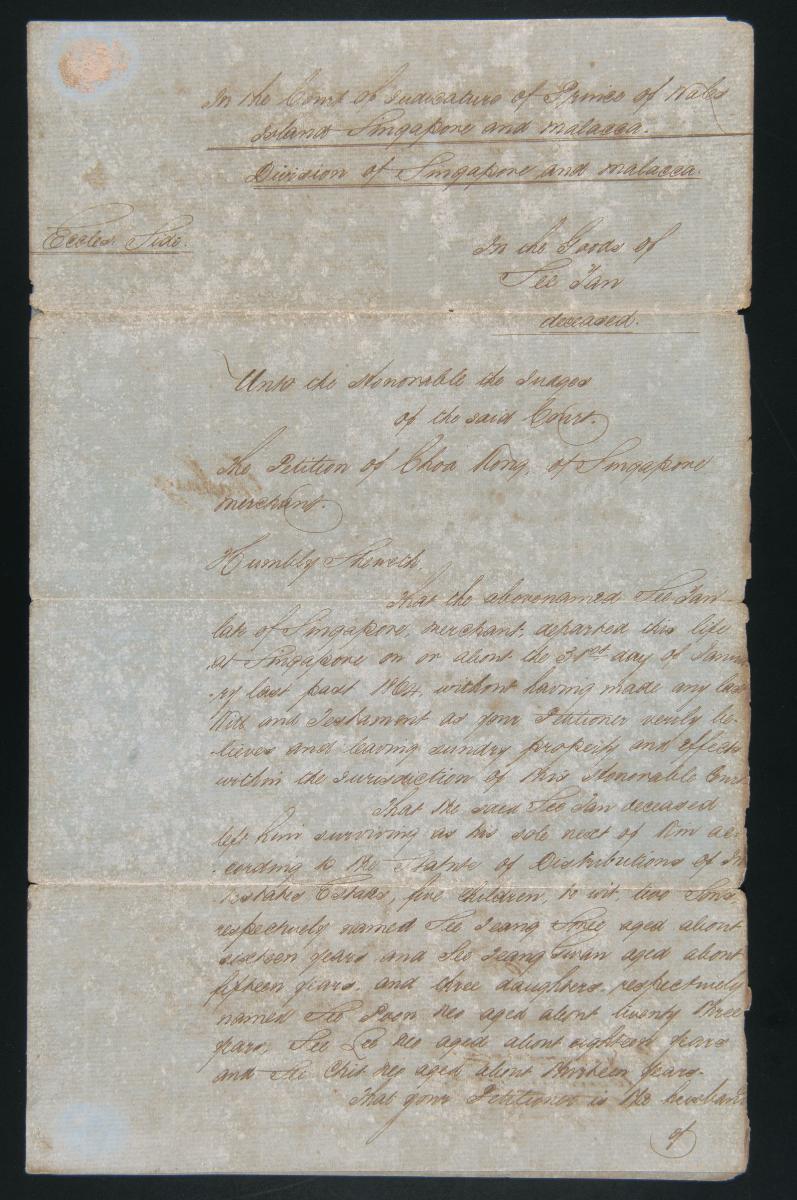 In the Court of Judicature of Prince of Wales
Island Singapore and Malacca.
Division of Singapore and Malacca.
Eccles. Side.
In the Goods of
See Tan
deceased.
Unto the Honorable the Judges
of the said Court.
The Petition of Choa Kong, of Singapore
Merchant.
Humbly Sheweth.
That the abovenamed See Tan
late of Singapore, Merchant, departed this life
at Singapore on or about the 31st day of Janu
ry last past 1864, without having made any last
Will and Testament as your Petitioner verily be-
lieves and leaving sundry property and effects
within the Jurisdiction of this Honorable Court
That the said See Tan deceased
left him surviving as his sole next of Kin ac-
cording to the Statute of Distributions of In
testates Estates, five children, to wit, two Sons,
respectively named See Teang aged about
sixteen years and See Teang Swan aged about
fifteen years, and three daughters, respectively
named See Poon Neo aged about twenty three
years, See Lee Neo aged about eighteen years
and See Chit Neo aged about thirteen years.
That your Petitioner is the husband
of